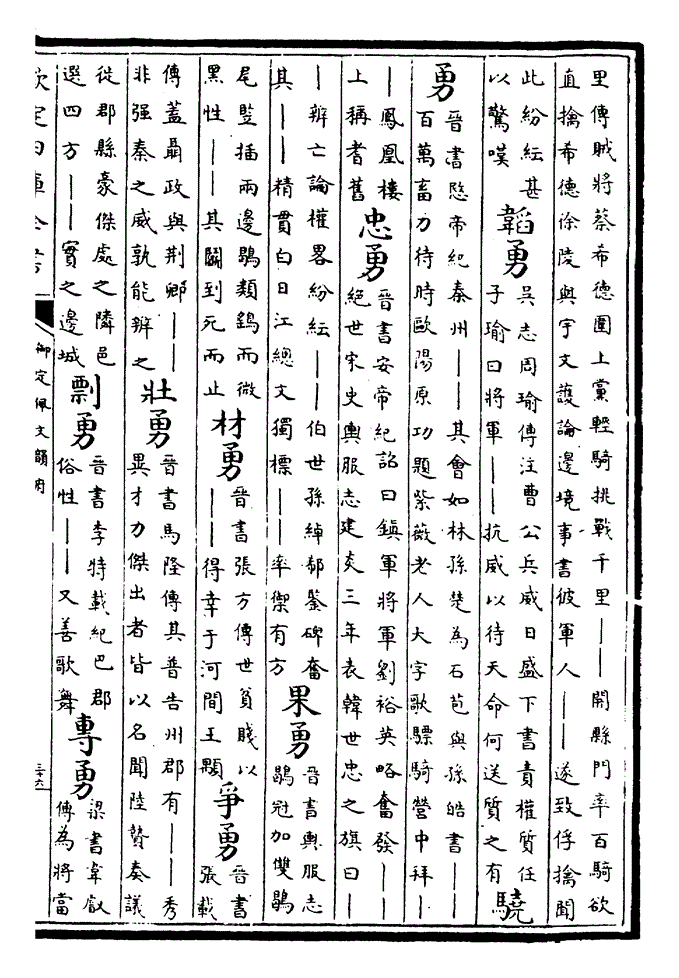 里傳賊將蔡希德圍上黨輕騎挑戰千里｜｜開縣門率百騎欲
直擒希德徐陵與宇文護論邊境事書彼軍人｜｜遂致俘擒聞
此紛紜甚
以驚嘆
韜勇
吳志周瑜傳注曹公兵威日盛下書責權質任
子瑜曰將軍｜｜抗威以待天命何送質之有
驍
勇
晉書愍帝紀秦州｜｜其會如林孫楚為石苞與孫皓書｜｜
百萬畜力待時歐陽原功題紫薇老人大字歌驃騎營中拜｜
｜鳳凰樓
上稱耆舊
忠勇
晉書安帝紀詔曰鎮軍將軍劉裕英略奮發｜｜
絕世宋史輿服志建炎三年表韓世忠之旗曰｜
｜辨亡論權畧紛紜｜｜伯世孫綽郗鑒碑奮
其｜｜精貫白日江總文獨標｜｜率禦有方
果勇
晉書輿服志
鶡冠加雙鶡
尾竪插兩邊鶡類鷂而微
黑性｜｜其鬬到死而止
材勇
晉書張方傳世貧賤以
｜｜得幸于河間王顒
爭勇
晉書
張載
傳蓋聶政與荆卿｜｜
非强秦之威孰能辨之
壯勇
晉書馬隆傳其普告州郡有｜｜秀
異才力傑出者皆以名聞陸贄奏議
從郡縣豪傑處之隣邑
選四方｜｜實之邊城
剽勇
晉書李特載紀巴郡
俗性｜｜又善歌舞
專勇
梁書韋叡
傳為將當
欽定四庫全書
御定佩文韻府
三十六